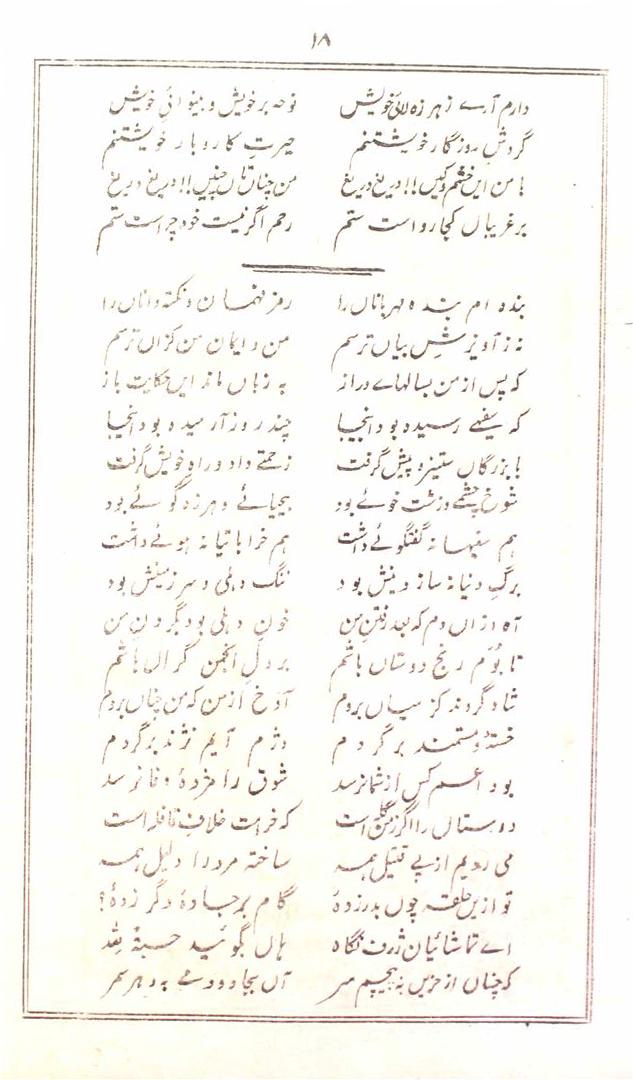 ۱۸
دارم آرے ز ہرزہ لائی خویش نوحہ بر خویش و بینوائی خویش
گردشِ روزگار خویشتنم حیرتِ کاروبار خویشتنم
با من ایں خشم و کیں!! دریغ دریغ من چناں تاں چنیں!! دریغ دریغ
بر غریباں کجا رواست ستم رحم اگر نیست خود چراست ستم
بندہ ام بندہ مہرباناں را رمز فہمان و نکتہ داناں را
نہ ز آویزشِ بیاں ترسم من و ایمان من کزاں ترسم
کہ پس از من بسالہاے دراز بہ زباں ماند ایں حکایت باز
کہ سفیہے رسیدہ بود اینجا چند روز آرمیدہ بود اینجا
با بزرگاں ستیزہ پیش گرفت زحمتے داد و راہِ خویش گرفت
شوخ چشمے و زشت خوئے بود بیحیائے و ہرزہ گوئے بود
ہم سفیہانہ گفتگوئے داشت ہم خراباتیانہ ہوئے داشت
برگِ دنیا نہ ساز دینش بود ننگِ دہلی و سرزمینش بود
آہ ازاں دم کہ بعد رفتن من خون دہلی بود بگردن من
تا بوم رنج دوستاں باشم بر دلِ انجمن گراں باشم
شاد گردند کز میاں بروم آوخ از من کہ من چناں بروم
خستہ و مستمند برگردم دژم آیم نژند برگردم
بوداعم کس از شما نرسد شوق را مژدۂ وفا نرسد
دوستاں را اگر ز من گلہ است کہ خرامت خلافِ قافلہ است
می رویم از پے قتیل ہمہ ساختہ مر ورا دلیل ہمہ
تو ازیں حلقہ چوں بدر زدۂ گام بر جادۂ دگر زدۂ؟
اے تماشائیانِ ژرف نگاہ ہاں بگوئید حسبۃً للہ
کہ چناں از حزیں نہ پیچم سر آں بجادو دمے بہ دہر سمر